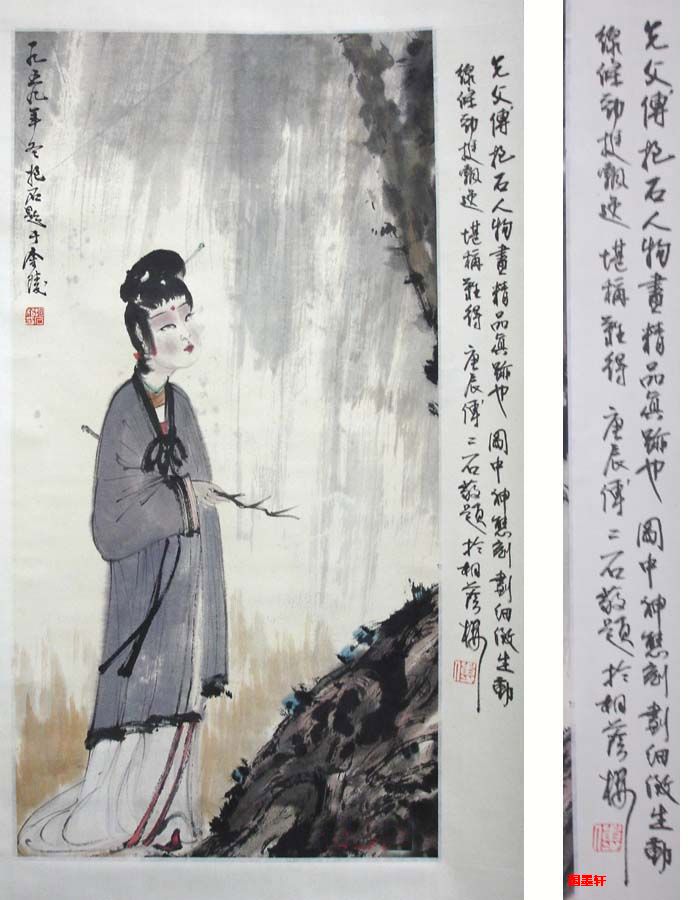 一九五九年冬抱石題于金陵
先父傅抱石人物畫精品眞跡也 圖中神態刻劃細微生動
線條勁挺飄逸 堪稱難得 庚辰傅二石敬題於相蔭樓
先父傅抱石人物畫精品眞跡也 圖中神態刻劃細微生動
線條勁挺飄逸 堪稱難得 庚辰傅二石敬題於相蔭樓
墨轩